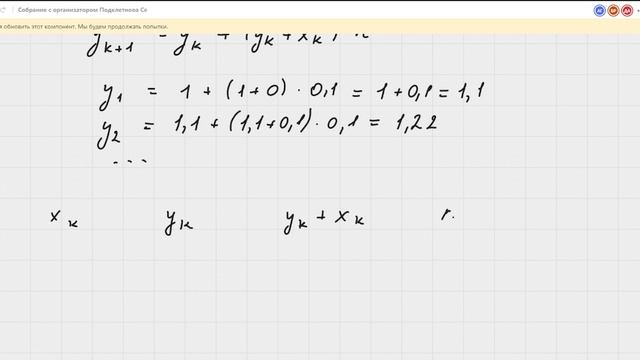 Собрание с организатором Подклетнова Се
я обновить этот компонент. Мы будем продолжать попытки.
y_{k+1} = y_k + (y_k + x_k) ·
y_1 = 1 + (1+0) · 0,1 = 1 + 0,1 = 1,1
y_2 = 1,1 + (1,1+0,1) · 0,1 = 1,22
...
x_k y_k y_k + x_k